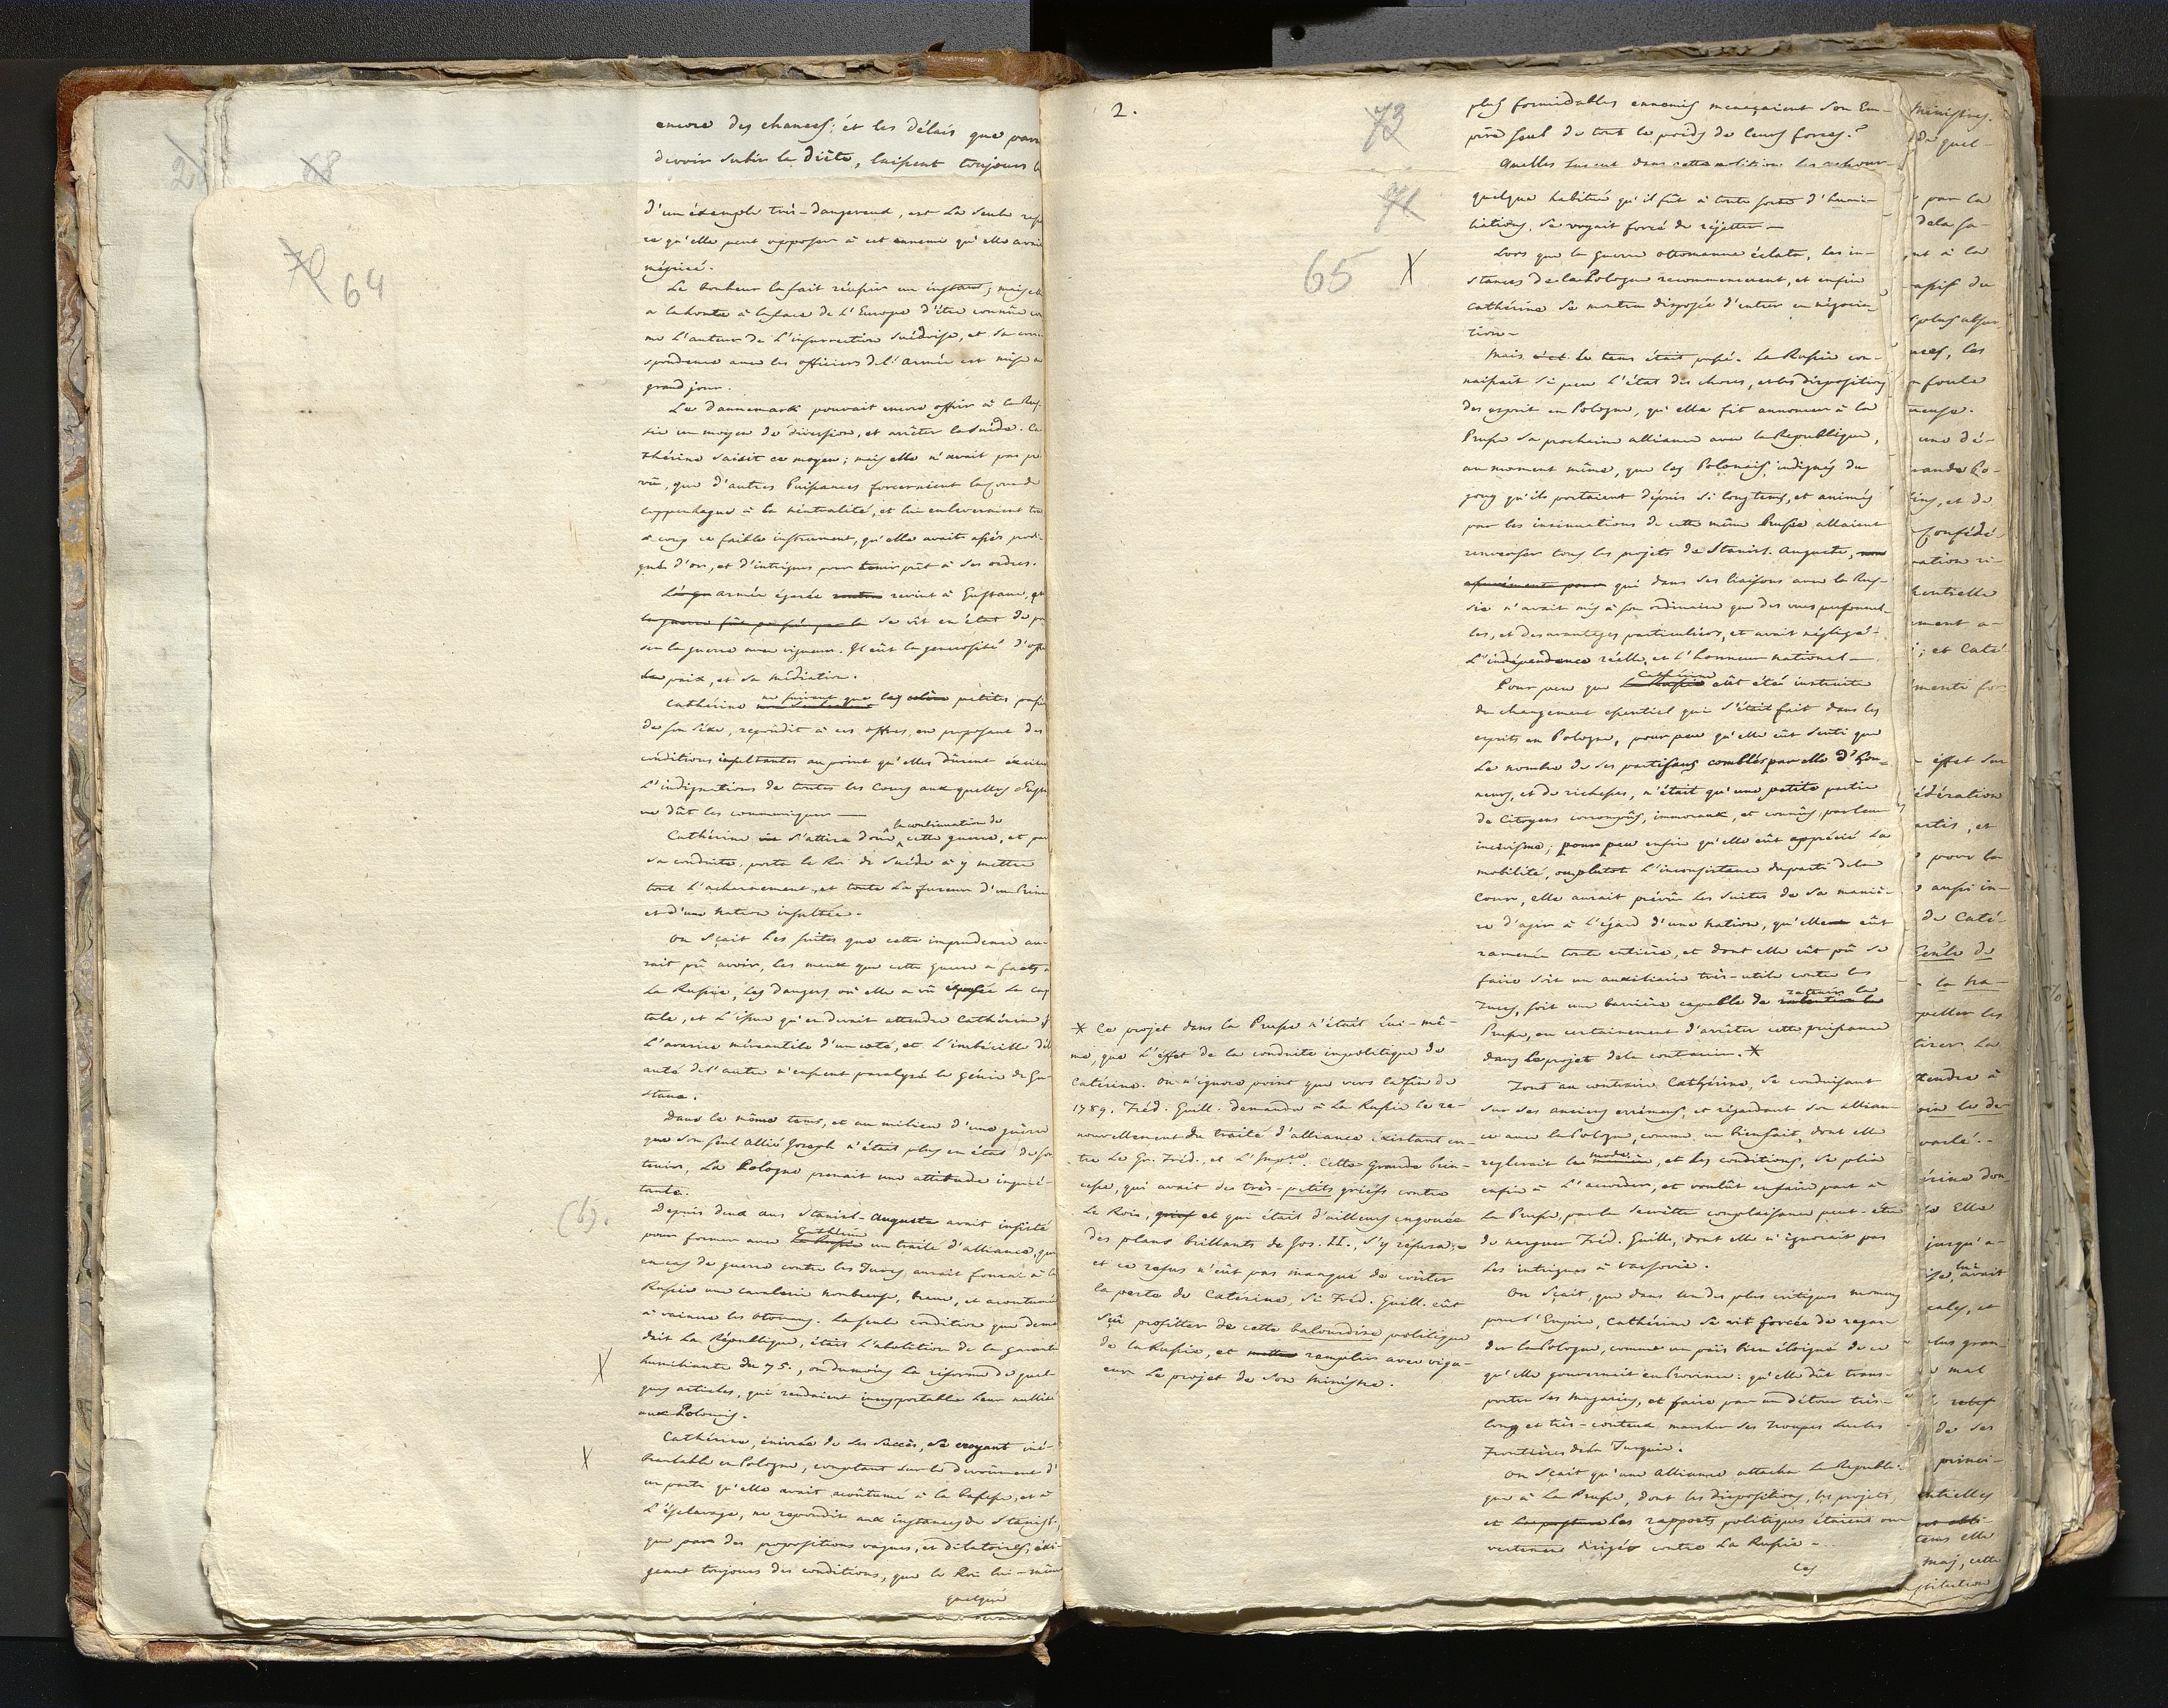 encore des chances; et les délais que
devoir subir la diète, laissent toujours
28
68
70
64
d'un éxemple très-dangereux, est la seule
re qu'elle peut opposer à cet ennemi qu'elle avait
méprisé.
Le bonheur la fait réussir un instant; mais
a la honte à la face de l'Europe d'être connûe
me l'auteur de l'insurrection Suédoise, et sa
spondence avec les officiers de l'armée est mise
grand jour.
Le dannemark pouvait encore offrir à la Rus-
sie un moyen de diversion, et arrêter la Suède. Ca-
thérine saisit ce moyen; mais elle n'avait pas
vû, que d'autres Puissances forceraient la cour de
coppenhague à la neutralité, et lui enleveraient
à coup ce faible instrument, qu'elle avait assés
gué d'or, et d'intrigues pour tenir prêt à ses ordres.
armée égarée revint à Gustave,
se vit en état de
la guerre avec vigueur. Il eût la generosité d'
la paix, et sa médiation.
Cathérine ne suivant que les petites
de son séxe, repondit à ces offres, en proposant des
conditions insultantes au point qu'elles dûrent éxciter
l'indignation de toutes les Cours aux quelles
ve dût les communiquer —
Cathérine s'attira donc la continuation de cette guerre, et par
sa conduite, porta le Roi de Suède à y mettre
tout l'acharnement, et toute la fureur d'un Prince
et d'une nation insultée.
On sçait les suites que cette imprudence au-
rait pû avoir, les maux que cette guerre a faits à
la Russie, les dangers où elle a vû éxposée sa
tale, et l'issue qu'en devait attendre Cathérine
l'avarice mércantile d'un coté, et l'imbécille
auté de l'autre n'eussent paralysé le génie de Gu-
stave.
Dans le même tems, et au milieu d'une guèrre
que son seul allié Joseph n'était plus en état de
tenir, la Pologne prenait une attitude inquié-
tante.
(b).
Depuis deux ans Stanisl-Auguste avait insisté
pour former avec Cathérine un traité d'alliance,
en cas de guerre contre les Turcs aurait fourni à la
Russie une cavalerie nombreuse, brave, et acoutumée
à vaincre les Otomans. La seule condition que
dait la République, était l'abolition de la
X
humiliante du 75., ou du moins la réforme de quel-
ques articles, qui rendaient insuportable leur nullité
aux Polonais.
X
Cathérine, énivrée de ses succès, se croyant iné-
branlable en Pologne, comptant sur le devouement d'
un parti qu'elle avait acoûtumé à la bassesse, et à
l'ésclavage, ne repondit aux instances de Stanisl.,
que par des propositions vagues, et dilatoires,
geant toujours des conditions, que le Roi lui-même
quelque
2.
73
plus formidables ennemis menaçaient son Em-
pire seul de tout le poids de leurs forces?
71
65 X
quelque habitué qu'il fût à toute sorte d'humi-
liations, se voyait forcé de réjetter —
Lors que la guerre ottomanne éclata, les in-
stances de la Pologne recommencerent, et enfin
Cathérine se montra disposée d'entrer en négocia-
tion —
Mais le tems était passé. La Russie con-
naissait si peu l'état des choses, et les dispositions
des esprits en Pologne, qu'elle fit annoncer à la
Prusse sa prochaine alliance avec la République,
au moment même, que les Polonais, indignés du
joug qu'ils portaient dépuis si long tems, et animés
par les insinuations de cette même Prusse allaient
renverser tous les projets de Stanisl. Auguste,
qui dans ses liaisons avec la Rus-
sie n'avait mis à son ordinaire que des vues personnel-
les, et des avantages particuliers, et avait négligé
l'indépendance réelle, et l'honneur national —
Pour peu que Cathérine eût étée instruite
du changement essentiel qui s'était fait dans les
esprits en Pologne, pour peu qu'elle eût senti que
le nombre de ses partisans comblés par elle d'hon-
neurs, et de richesses, n'était qu'une petite partie
de Citoyens corrompûs, immoraux, et connûs par leur
incivisme; pour peu enfin qu'elle eût apprécié la
mobilité, ou plutot l'inconsistance du parti de la
Cour, elle aurait prévûe les suites de sa maniè-
re d'agir à l'égard d'une nation, qu'elle eût
ramenée toute entière, et dont elle eût pû se
faire soit un auxiliaire très-utile contre les
Turcs, soit une barrière capable de ralentir la
Prusse, ou certainement d'arrêter cette puissance
dans le projet de la contenir. *
Tout au contraire Cathérine, se conduisant
sur ses anciens erremens, et régardant son allian-
ce avec la Pologne, comme un bienfait, dont elle
reglerait le mode, et les conditions, se plia
enfin à l'accorder, et voulût en faire part à
la Prusse, par la secrette complaisance peut-être
de narguer Fréd. Guill., dont elle n'ignorait pas
les intrigues à Varsovie.
On sçait, que dans un des plus critiques momens
pour l'Empire, Cathérine se vit forcée de regar-
der la Pologne, comme un païs bien éloigné de ce
qu'elle gouvernait en Province: qu'elle dût trans-
porter ses magazins, et faire par un détour très-
long et très-couteux marcher ses troupes sur les
Frontières de la Turquie.
On sçait qu'une alliance attacha la Republi-
que à la Prusse, dont les dispositions, les projets,
et les rapports politiques étaient ou-
vertement dirigés contre la Russie -..
Ces
* Ce projet dans la Prusse n'était lui-mê-
me, que l'éffet de la conduite impolitique de
Catérine. On n'ignore point que vers la fin de
1789. Fréd. Guill. demanda à la Russie le re-
nouvellement du traité d'alliance éxistant en-
tre le Gr. Fréd., et l'Imp.ce. Cette grande Prin-
cesse, qui avait de très-petits griefs contre
le Roi, et qui était d'ailleurs engouée
des plans brillants de Jos. II., s'y refusa: -
et ce refus n'eût pas manqué de coûter
la perte de Catérine, si Fréd. Guill. eût
sçû profitter de cette balourdise politique
de la Russie, et remplir avec vigu-
eur le projet de son Ministre.
Ministres.
quel-
par la
de la sa-
nt à la
foule
une dé-
Confédé-
; et Caté-
effet sur
édération
pour la
aussi in-
de Caté-
la na-
tirer la
tendre à
Elle
jusqu'a-
lui avait
mal
de ses
princi-
entielles
tems elle
Maj, cette